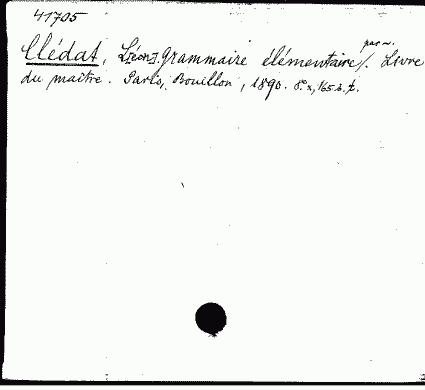 41705
Clédat, L[éon]. Grammaire élémentaire par ~. Livre
du maître. Paris, Bouillon, 1890. 8° x, 165 S.